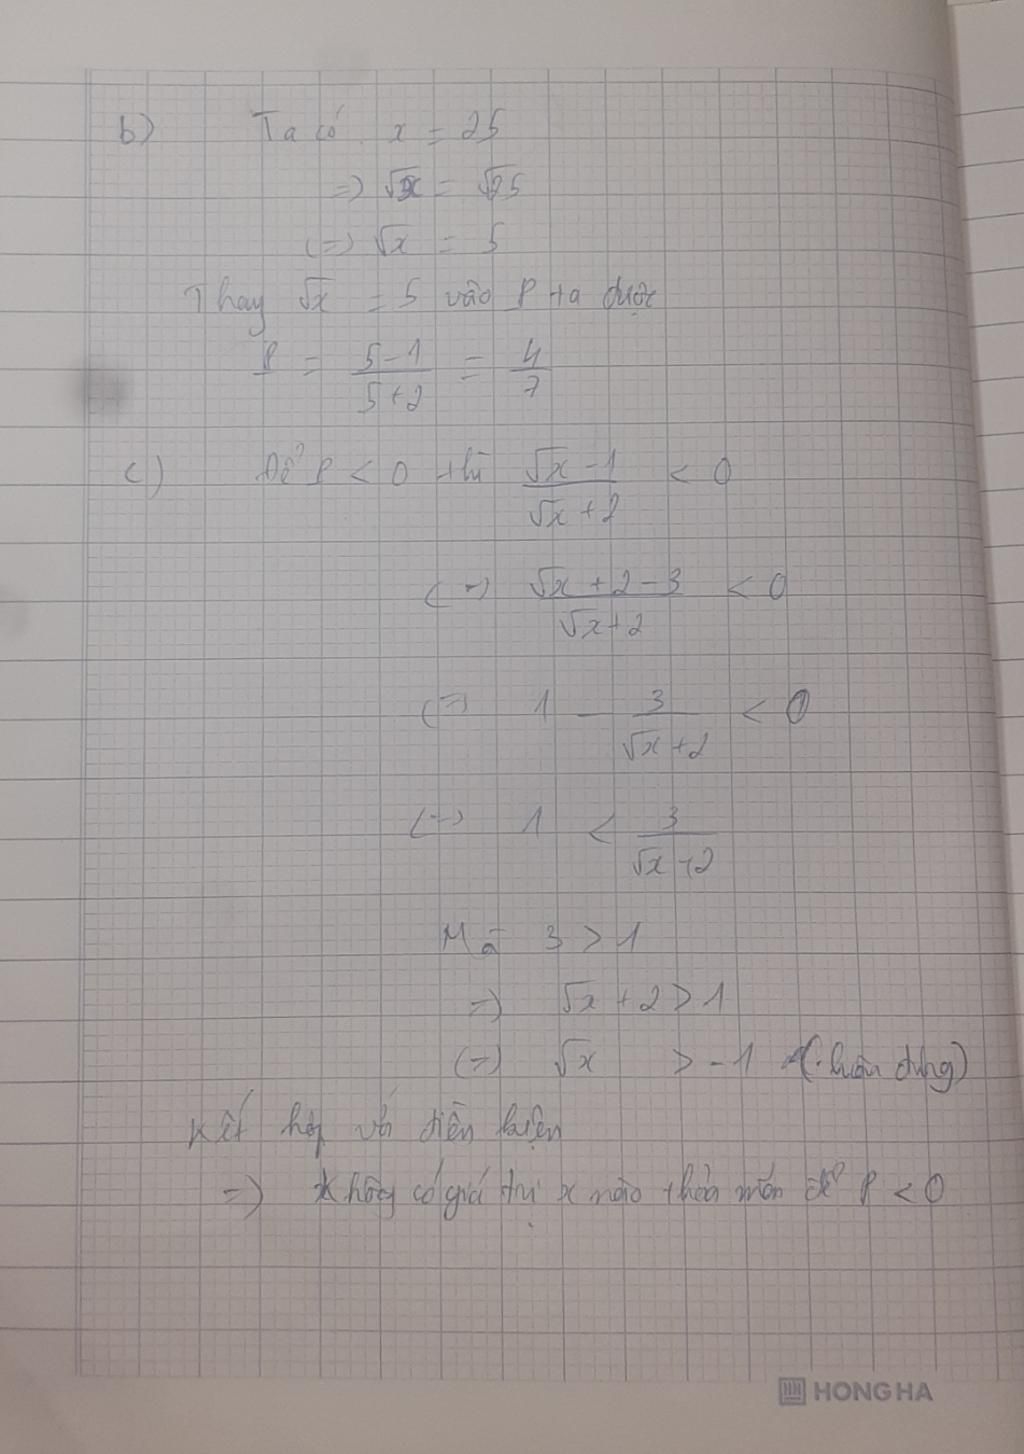 b) Ta có x = 25
=> √x = √25
(=) √x = 5
Thay √x = 5 vào P ta được
P = (5-1)/(5+2) = 4/7
c) Để P < 0 thì (√x - 1)/(√x + 2) < 0
(=) (√x + 2 - 3)/(√x + 2) < 0
(=) 1 - 3/(√x + 2) < 0
(=) 1 < 3/(√x + 2)
Mà 3 > 1
=) √x + 2 > 1
(=) √x > -1 (luôn đúng)
Kết hợp với điều kiện
=) Không có giá trị x nào thỏa mãn để P < 0
HONG HA